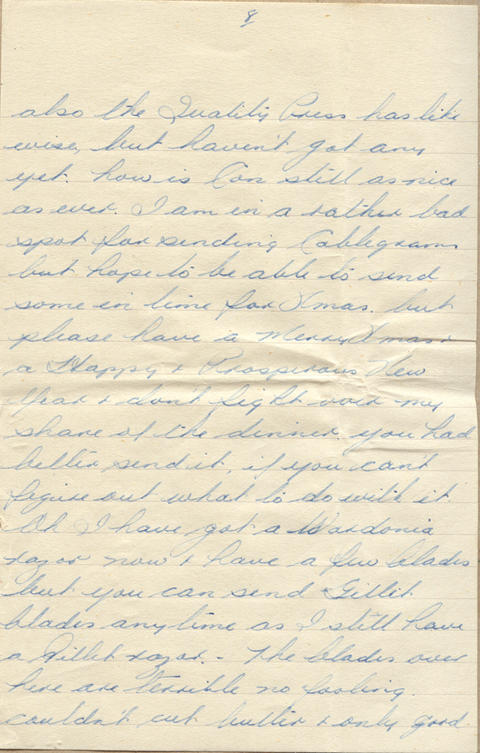 8
also the Quality Press has like
wise, but haven't got any
yet. how is Con still as nice
as ever. I am in a rather bad
spot for sending Cablegrams
but hope to be able to send
some in time for Xmas. but
please have a Merry Xmas &
a Happy & Prosperous New
Year & don't fight over my
share of the dinner. you had
better send it, if you can't
figure out what to do with it.
Oh I have got a Wardonia
razor now & have a few blades
but you can send Gillet
blades anytime as I still have
a Gillet razor. - The blades over
here are terrible no fooling.
couldn't cut butter & only good